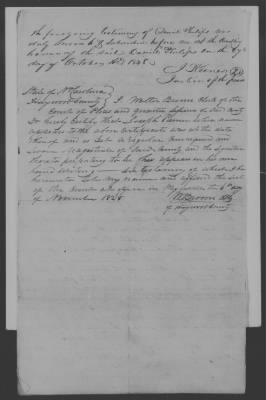 The foregoing testimony of Daniel Philips was
duly sworn to & subscribed before me at the dwelling
house of the said Daniel Philips on the
day of October AD 1848
J Keener
Justice of the peace
State of N Carolina
Haywood County I Walter Brown Clerk of the
Court of Pleas and quarter Sessions
Do hereby Certify that Joseph Keener whose name
appears to the above Certificate was at the date
thereof and is yet a regular
Sworn Magistrate of said County and the Signature
thereto purporting to be his appears in his own
hand writing In testimony of which I do
hereunto Subscribe my name and affixed the seal
of the Court at office in the 6th day
of November 1848
W Brown Clk
of Haywood County